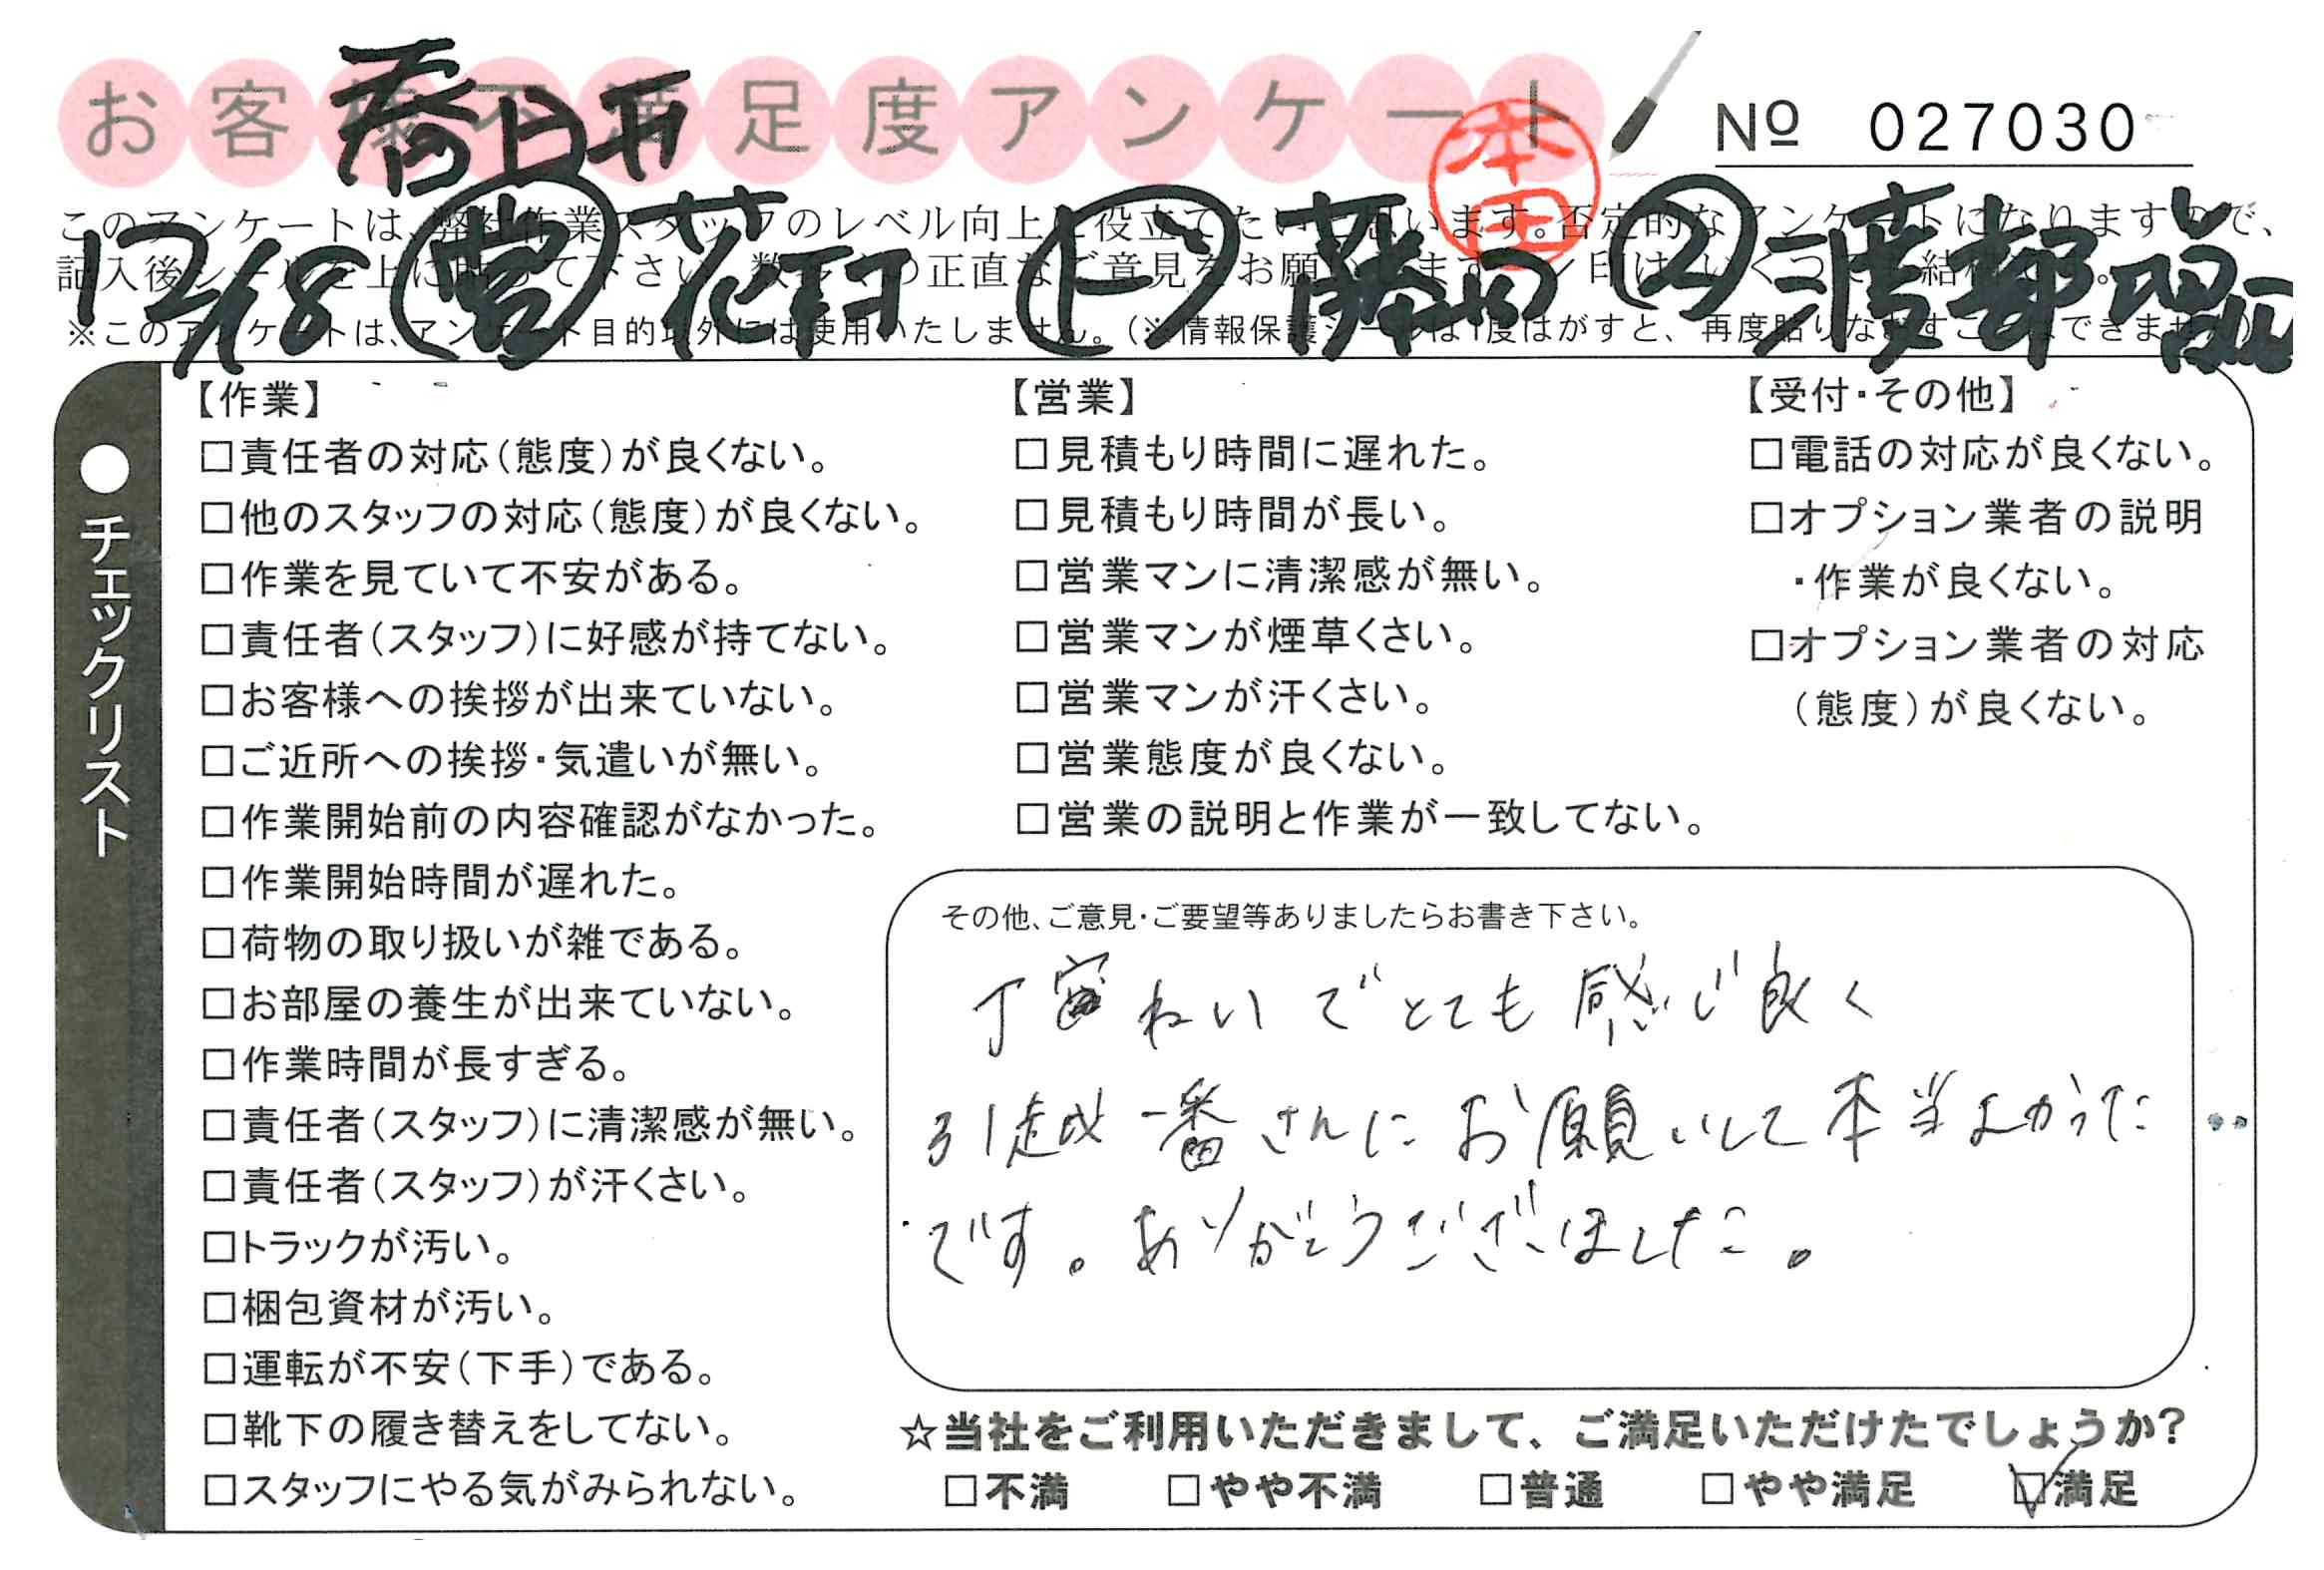 お客様不満足度アンケート
№ 027030
本田
12/18 営 花村 ド 藤田 ス 渡部
このアンケートは、弊社作業スタッフのレベル向上に役立てたいと思います。否定的なアンケートになりますので、
記入後シールを上に貼って下さい。数多くの正直なご意見をお願いします。レ印はいくつでも結構です。
※このアンケートは、アンケート目的以外には使用いたしません。(※情報保護シールは1度はがすと、再度貼りなおすことはできません)
●チェックリスト
【作業】
□責任者の対応(態度)が良くない。
□他のスタッフの対応(態度)が良くない。
□作業を見ていて不安がある。
□責任者(スタッフ)に好感が持てない。
□お客様への挨拶が出来ていない。
□ご近所への挨拶・気遣いが無い。
□作業開始前の内容確認がなかった。
□作業開始時間が遅れた。
□荷物の取り扱いが雑である。
□お部屋の養生が出来ていない。
□作業時間が長すぎる。
□責任者(スタッフ)に清潔感が無い。
□責任者(スタッフ)が汗くさい。
□トラックが汚い。
□梱包資材が汚い。
□運転が不安(下手)である。
□靴下の履き替えをしてない。
□スタッフにやる気がみられない。
【営業】
□見積もり時間に遅れた。
□見積もり時間が長い。
□営業マンに清潔感が無い。
□営業マンが煙草くさい。
□営業マンが汗くさい。
□営業態度が良くない。
□営業の説明と作業が一致してない。
【受付・その他】
□電話の対応が良くない。
□オプション業者の説明
・作業が良くない。
□オプション業者の対応
(態度)が良くない。
その他、ご意見・ご要望等ありましたらお書き下さい。
丁寧ねいでとても感じ良く
引越一番さんにお願いして本当よかった
です。ありがとうございました。
☆当社をご利用いただきまして、ご満足いただけたでしょうか?
□不満 □やや不満 □普通 □やや満足 ☑満足